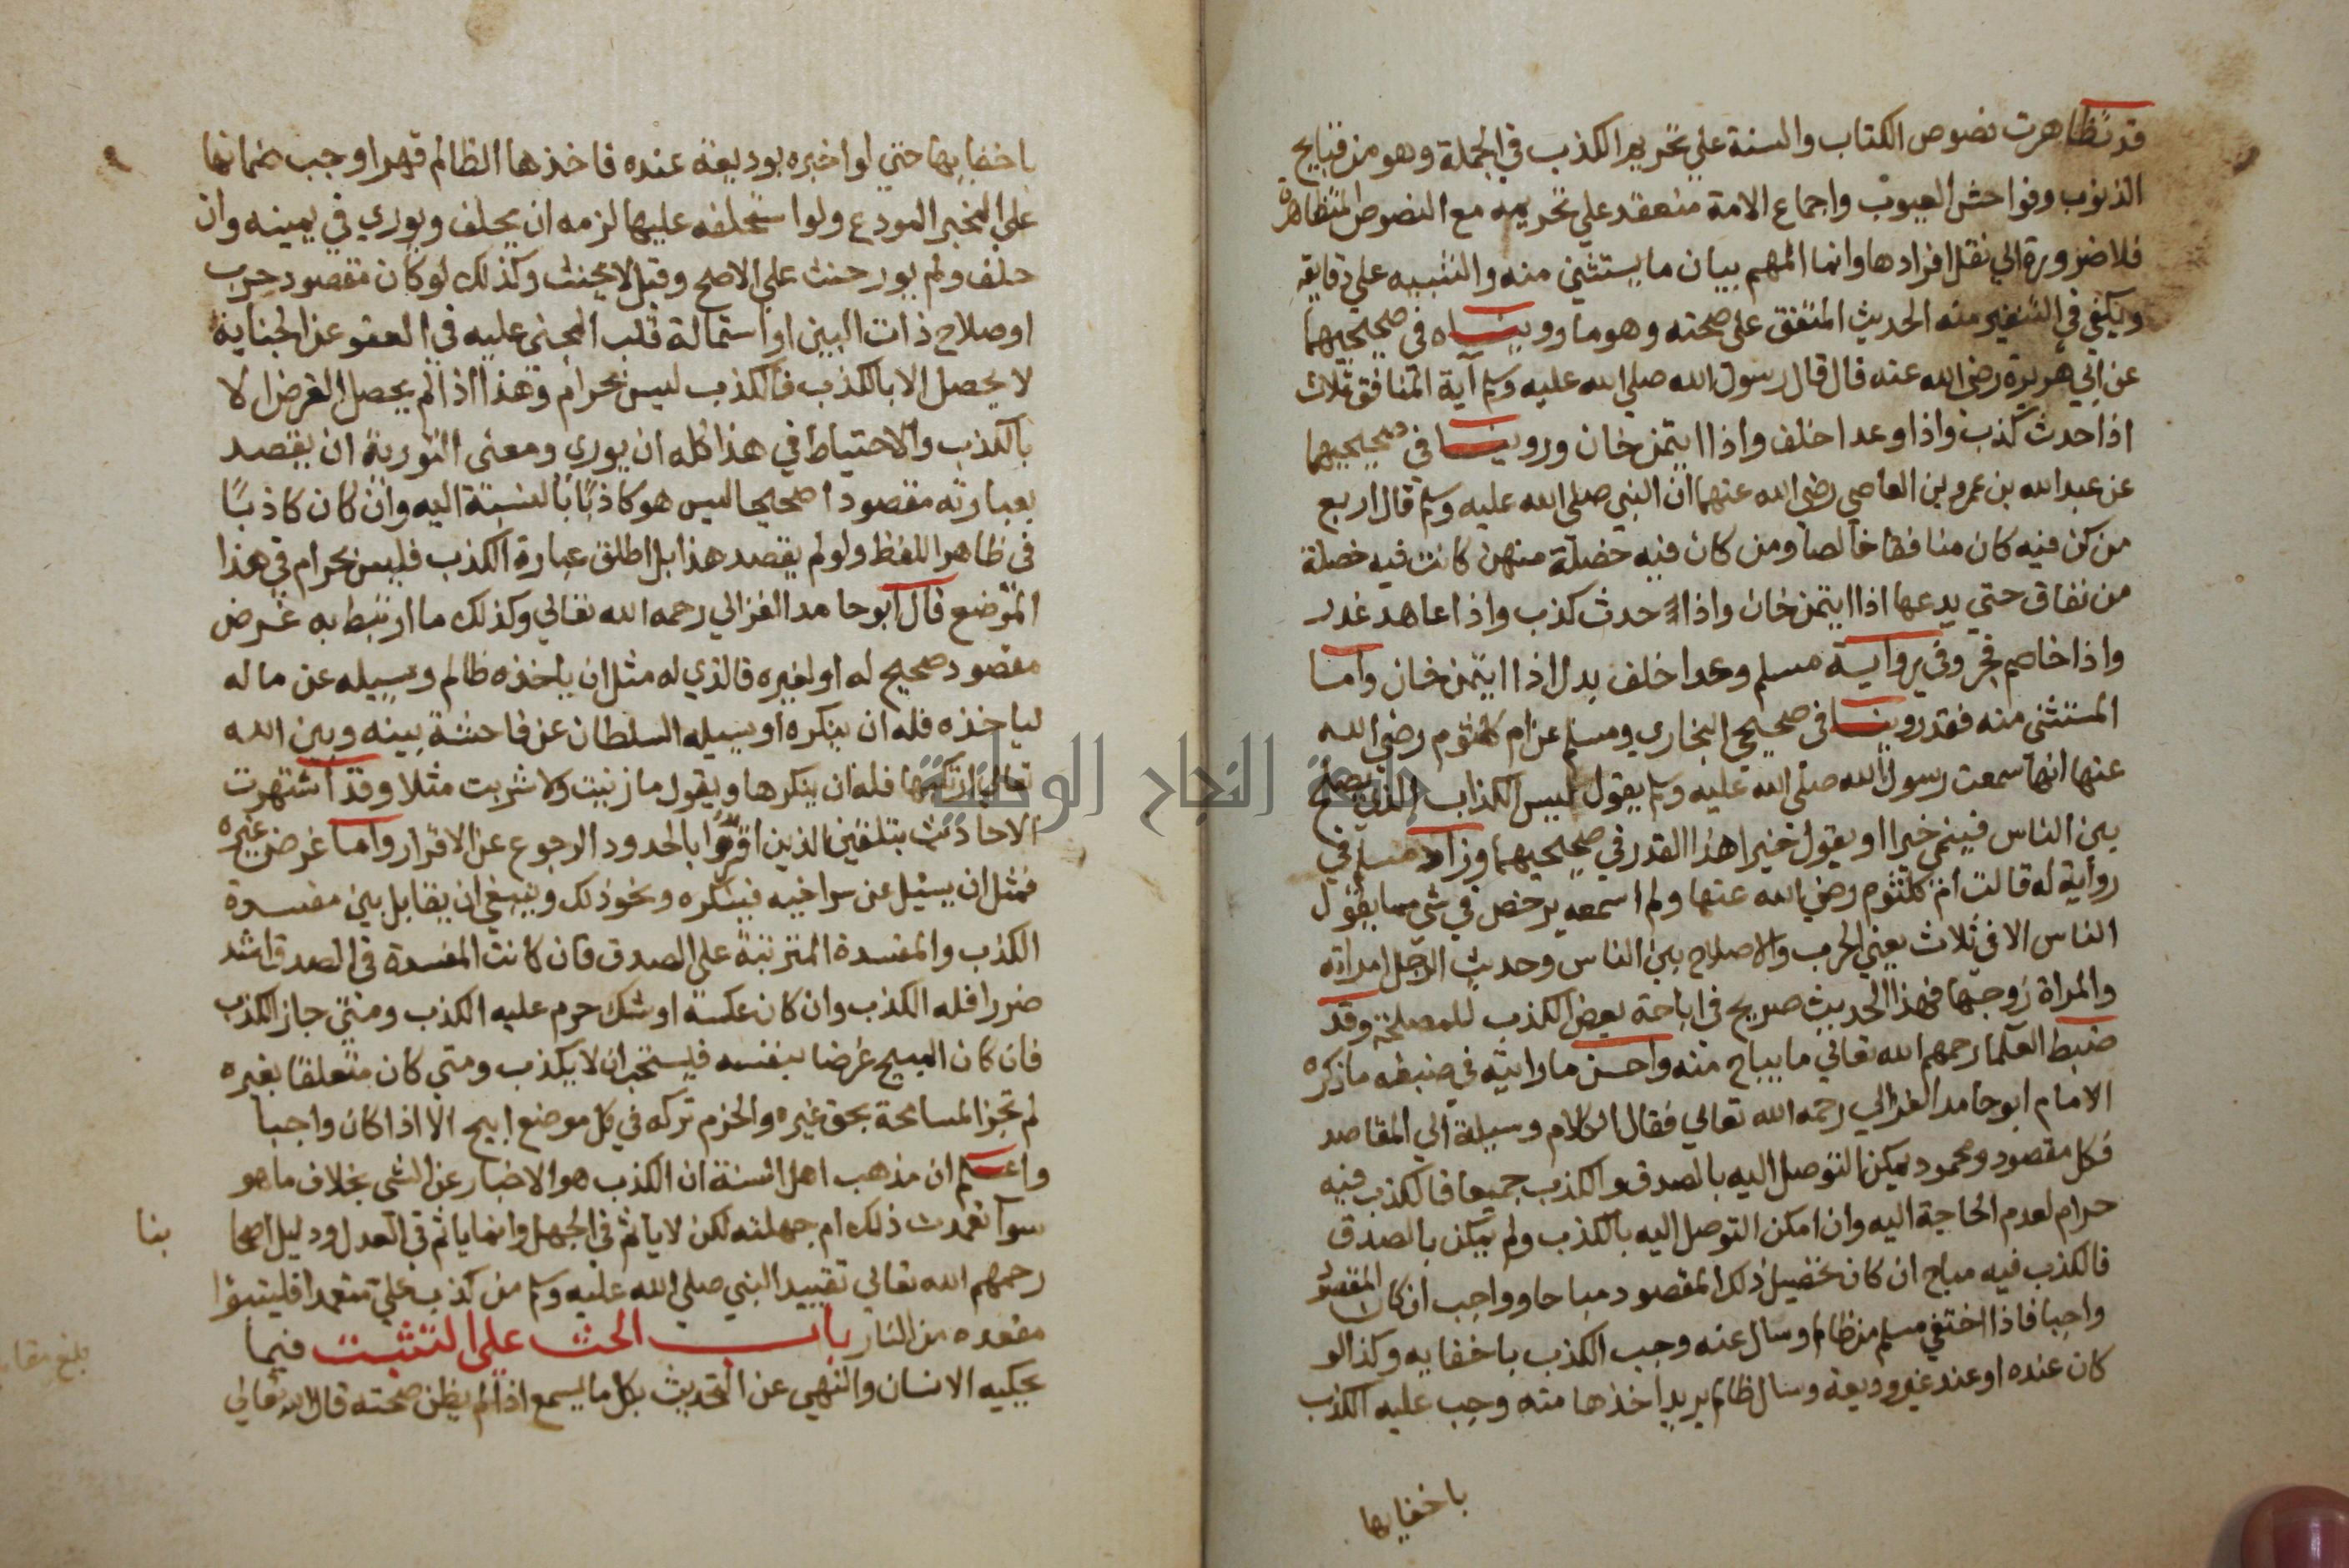 قد تظاهرت نصوص الكتاب والسنة علي تحريم الكذب في الجملة وهو من قبايح
الذنوب وفواحش العيوب واجماع الامة منعقد علي تحريمه مع النصوص المتظاهرة
فلا ضرورة الي نقل افرادها وانما المهم بيان ما يستثني منه والتنبيه علي دقايقه
ويكفي في التنفير منه الحديث المتفق علي صحته وهو ما رويناه في صحيحيهما
عن ابي هريرة رضي الله عنه قال قال رسول الله صلي الله عليه وسلم آية المنافق ثلاث
اذا حدث كذب واذا وعد اخلف واذا ايتمن خان وروينا في صحيحيهما
عن عبد الله بن عمرو بن العاصي رضي الله عنهما ان النبي صلي الله عليه وسلم قال اربع
من كن فيه كان منافقا خالصا ومن كان فيه خصلة منهن كانت فيه خصلة
من نفاق حتي يدعها اذا ايتمن خان واذا حدث كذب واذا عاهد غدر
واذا خاصم فجر وفي رواية مسلم وعد اخلف بدل اذا ايتمن خان واما
المستثني منه فقد روينا في صحيحي البخاري ومسلم عن ام كلثوم رضي الله
عنها انها سمعت رسول الله صلي الله عليه وسلم يقول ليس الكذاب الذي يصلح
بين الناس فينمي خيرا او يقول خيرا هذا القدر في صحيحيهما وزاد مسلم في
رواية له قالت ام كلثوم رضي الله عنها ولم اسمعه يرخص في شي مما يقول
الناس الا في ثلاث يعني الحرب والاصلاح بين الناس وحديث الرجل امراته
والمراة زوجها فهذا الحديث صريح في اباحة بعض الكذب للمصلحة وقد
ضبط العلما رحمهم الله تعالي ما يباح منه واحسن ما رايته في ضبطه ما ذكره
الامام ابو حامد الغزالي رحمه الله تعالي فقال الكلام وسيلة الي المقاصد
فكل مقصود محمود يمكن التوصل اليه بالصدق والكذب جميعا فالكذب فيه
حرام لعدم الحاجة اليه وان امكن التوصل اليه بالكذب ولم يمكن بالصدق
فالكذب فيه مباح ان كان تحصيل ذلك المقصود مباحا وواجب ان كان المقصود
واجبا فاذا اختفي مسلم من ظالم وسال عنه وجب الكذب باخفايه وكذا لو
كان عنده او عند غيره وديعة وسال ظالم يريد اخذها منه وجب عليه الكذب
باخفايها
باخفايها حتي لو اخبره بوديعة عنده فاخذها الظالم قهرا وجب ضمانها
علي المخبر المودع ولو استحلفه عليها لزمه ان يحلف ويوري في يمينه وان
حلف ولم يور حنث علي الاصح وقيل لا يحنث وكذلك لو كان مقصود حرب
او صلاح ذات البين او استمالة قلب المجني عليه في العفو عن الجناية
لا يحصل الا بالكذب فالكذب ليس بحرام وهذا اذا لم يحصل الغرض الا
بالكذب والاحتياط في هذا كله ان يوري ومعني التورية ان يقصد
بعبارته مقصودا صحيحا ليس هو كاذبا بالنسبة اليه وان كان كاذبا
في ظاهر اللفظ ولو لم يقصد هذا بل اطلق عبارة الكذب فليس بحرام في هذا
الموضع قال ابو حامد الغزالي رحمه الله تعالي وكذلك ما ارتبط به غرض
مقصود صحيح له او لغيره فالذي له مثل ان ياخذه ظالم ويسيله عن ماله
لياخذه فله ان ينكره او يسيله السلطان عن فاحشة بينه وبين الله
تعالي ارتكبها فله ان ينكرها ويقول ما زنيت ولا شربت مثلا وقد اشتهرت
الاحاديث بتلقين الذين اقروا بالحدود الرجوع عن الاقرار واما غرض غيره
فمثل ان يسئل عن سر اخيه فينكره ونحو ذلك وينبغي ان يقابل بين مفسدة
الكذب والمفسدة المترتبة علي الصدق فان كانت المفسدة في الصدق اشد
ضررا فله الكذب وان كان عكسه او شك حرم عليه الكذب ومتي جاز الكذب
فان كان المبيح غرضا بنفسه فيستحب ان لا يكذب ومتي كان متعلقا بغيره
لم تجز المسامحة بحق غيره والحزم تركه في كل موضع ابيح الا اذا كان واجبا
واعلم ان مذهب اهل السنة ان الكذب هو الاخبار عن الشي بخلاف ما هو
سوا تعمدت ذلك ام جهلته لكن لا ياثم في الجهل وانما ياثم في العدل ودليل اصحا
بنا
رحمهم الله تعالي تقييد النبي صلي الله عليه وسلم من كذب علي متعمدا فليتبوا
مقعده من النار باب الحث علي التثبت فيما
يحكيه الانسان والنهي عن التحديث بكل ما يسمع اذا لم يظن صحته قال الله تعالي
جامعة النجاح الوطنية